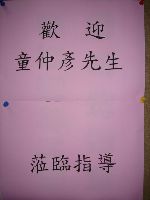 歡迎
童仲彥先生
蒞臨指導